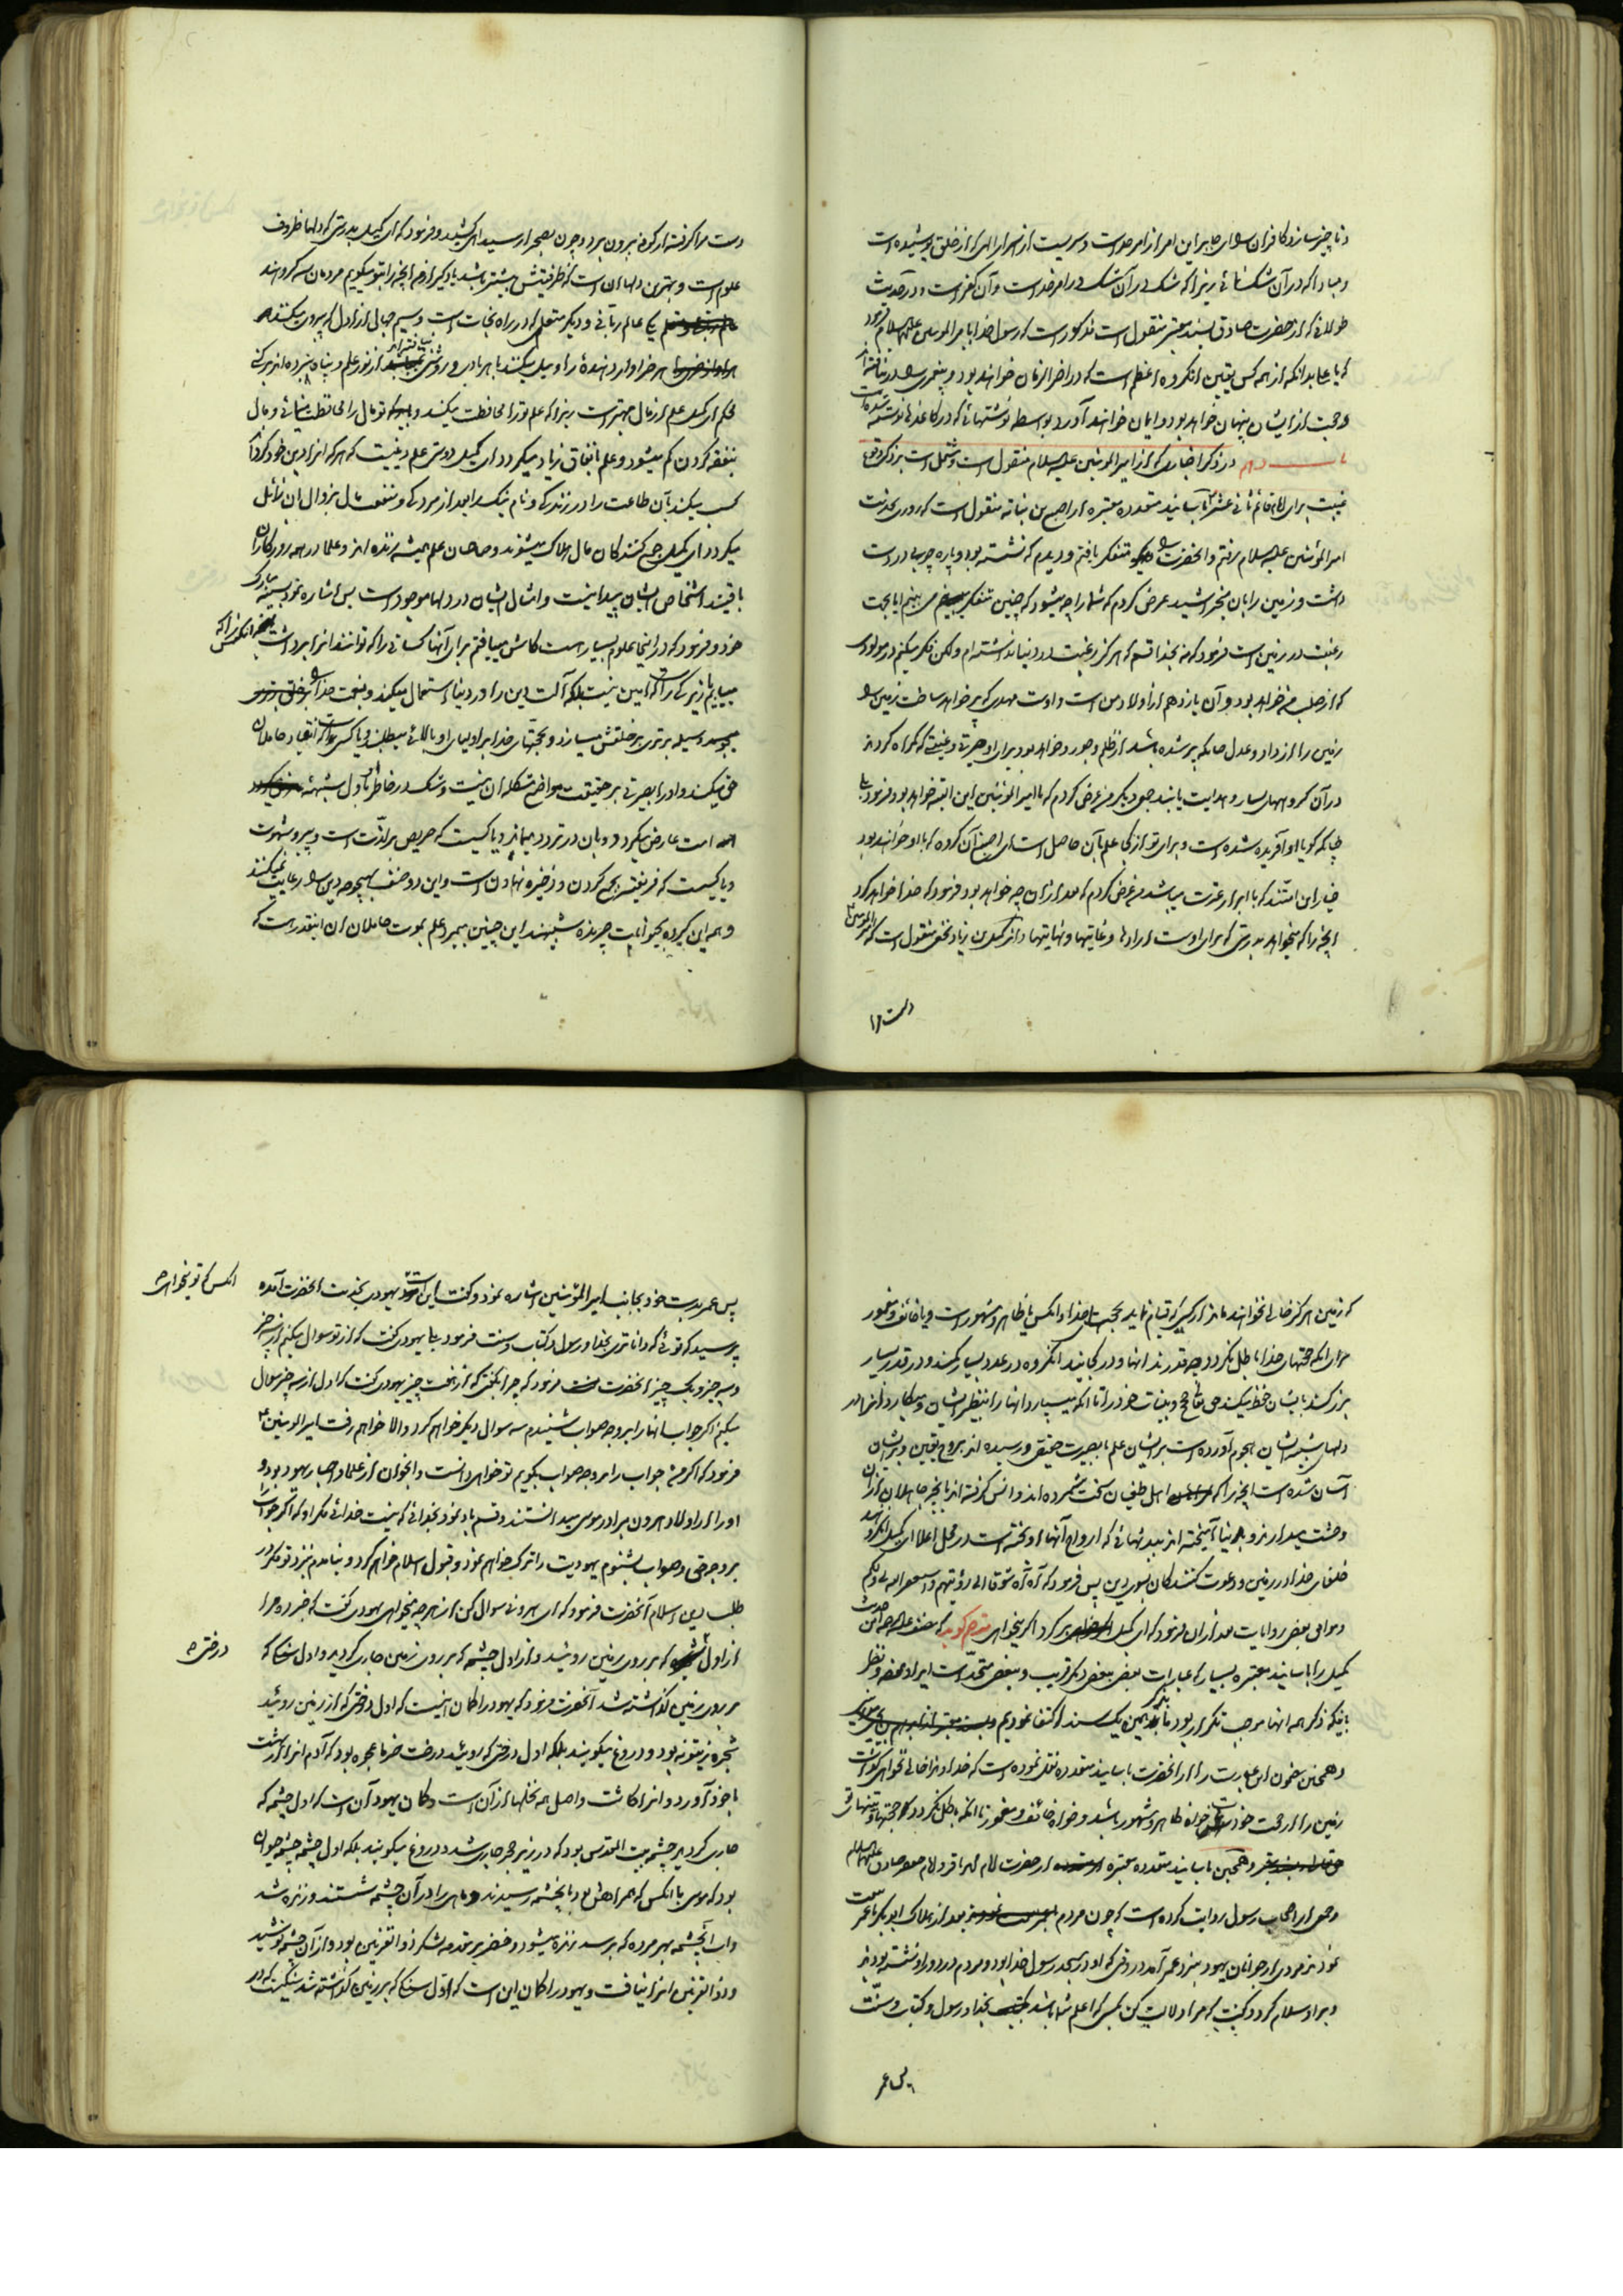 و ناچیز سازد کافران را ای جابر این امر از امر خداست و سریست از اسرار الهی که از خلق پوشیده است
و مبادا که در آن شک نمائی زیرا که شک در آن شک در امر خداست و آن کفر است و در حدیث
طولانی که از حضرت صادق بسند معتبر منقول است مذکور است که رسول خدا با امیر المومنین علیهما السلام فرمود
که یا علی بدانکه از همه کس یقین انکروه اعظم است که در اخر الزمان خواهند بود و پیغمبری را درنیافته اند
و حجت از ایشان پنهان خواهد بود و ایمان خواهند آورد بواسطه نوشتهائی که در کاغذها نوشته شده است
باب دهم در ذکر اخباری که از امیر المومنین علیه السلام منقول است و مشتمل است بر ذکر وقوع
غیبت برای امام قائم ثانی عشر باسانید متعدده معتبره از اصبغ بن نباته منقول است که روزی بخدمت
امیر المؤمنین علیه السلام رفتم و انحضرت را متفکر یافتم و دیدم که نشسته بود و پاره چوبی در دست
داشت و زمین را بان میخراشید عرض کردم که شما را چه میشود که چنین متفکر می بینم ایا بجهت
رغبت در زمین است فرمود که نه بخدا قسم که هرگز رغبت در دنیا نداشته ام ولکن فکر میکنم در مولودی
که از صلب من خواهد بود و آن یازدهم از اولاد من است و اوست مهدی که پر خواهد ساخت زمین را
زمین را از داد و عدل چنانکه پر شده باشد از ظلم و جور و خواهد بود برای او حیرتی و غیبتی که گمراه گردند
در آن گروههای بسیار و هدایت یابند جمعی دیگر من عرض کردم که یا امیر المؤمنین این البته خواهد بود فرمود بلی
چنانکه گویا او آفریده شده است و برای تو از کجا علم بآن حاصل است ای اصبغ آن گروه که با او خواهند بود
خیار این امتند که با ابرار عترت میباشند عرض کردم که بعد از آن چه خواهد بود فرمود که خدا خواهد کرد
انچه را که میخواهد بدرستی که برای اوست ارادها و غایتها و نهایتها و از کمیل بن زیاد نخعی منقول است که امیر المومنین
دست مرا
دست مرا گرفته از کوفه بیرون برد و چون بصحرا رسید اهی کشید و فرمود که ای کمیل بدرستی که دلها ظروف
علوم است و بهترین دلها آن است که ظرفیتش بیشتر باشد یاد گیر از من انچه را بتو میگویم مردمان سه گروهند
یکی عالم ربانی و دیگر متعلمی که در راه نجات است و سیم جهال اراذل که پیروی میکنند
هر خواننده را و میل میکنند با هر بادی و روشنی نیافته اند از نور علم و پناه نبرده اند برکنی
محکم ای کمیل علم از مال بهتر است زیرا که علم تو را محافظت میکند و تو مال را محافظت مینمائی و مال
بنفقه کردن کم میشود و علم بانفاق زیاد میگردد ای کمیل دوستی علم دینیست که هر که انرا دین خود کرد
کسب میکند بآن طاعت را در زندگی و نام نیک را بعد از مردگی و منفعت مال بزوال ان زائل
میگردد ای کمیل جمع کنندگان مال هلاک میشوند و صاحبان علم همیشه زنده اند و علما در همه روزگاران
باقیند اشخاص ایشان پیدا نیست و امثال ایشان در دلها موجود است پس اشاره نمود بسینه مبارک
خود و فرمود که در اینجا علوم بسیار است کاش مییافتم برای آنها کسانی را که توانند انرا برداشت
مییابم زیرکی را که امین نیست بلکه آلت دین را در دنیا استعمال میکند و بنعمت خدا بر خلق
وسیله برتری بر خلقش میسازد و بحجتهای خدا بر اولیای او بالائی میطلبد و یا کسی را که انقیاد حاملان
حق میکند و او را بصیرتی بر حقیقت مواضع مشکله ان نیست و شک در خاطر او باول شبهه
است عارض میگردد و بان در تردد میماند و یا کسیست که حریص بر لذت است و پیرو شهوت
و یا کسیست که فریفته بجمع کردن و ذخیره نهادن است و این دو صنف بهیچ وجه دین را رعایت نمیکنند
و همه این گروه بحیوانات چرنده شبیهند این چنین بمیرد علم بموت حاملان ان اینقدر هست که
که زمین هرگز خالی نخواهند ماند از کسی که قیام نماید بحجتهای خدا و انکس یا ظاهر و مشهور است و یا خائف و مغمور
برای انکه حجتهای خدا باطل نگردد و چه قدرند انها و در کجایند انگروه در عدد بسیار کمند و در قدر بسیار
بزرگند بایشان حفظ میکند حق تعالی حجج و بینات خود را تا انکه بسپارد انها را بنظیر ایشان و بکارد انرا در
دلهای شبیه ایشان هجوم آورده است بر ایشان علم با بصیرت حقیقی و رسیده اند بروح یقین و بر ایشان
آسان شده است انچه را که اهل طغیان سخت شمرده اند و انس گرفته اند بانچه جاهلان از آن
وحشت میدارند و با دنیا آمیخته اند ببدنهائی که ارواح آنها آویخته است در محل اعلا ای کمیل انگروهند
خلفای خدا در زمین و دعوت کنندگان بسوی دین پس فرمود که آه آه شوقا الی رؤیتهم و استغفر الله لی و لکم
و موافق بعضی روایات بعد از ان فرمود که ای کمیل برگرد اگر میخواهی مترجم گوید که مصنف علیه الرحمه این حدیث
کمیل را باسانید معتبره بسیار که عبارات بعضی ببعض دیگر قریب و ببعضی متحد است ایراد نموده و نظر
باینکه ذکر همه انها موجب تکرار بود ما بذکر همین یک سند اکتفا نمودیم
و همچنین مضمون این عبارت را از انحضرت باسانید متعدده نقل نموده است که خداوندا خالی نخواهی گذاشت
زمین را از حجت خود خواه ظاهر و مشهور باشد و خواه خائف و مغمور تا انکه باطل نگردد حجتها و بینهای تو
و همچنین باسانید متعدده معتبره از حضرت امام محمد باقر و امام جعفر صادق علیهما السلام
و جمعی از اصحاب رسول روایت کرده است که چون مردم بعد از هلاک ابوبکر با عمر بیعت
نمودند مردی از جوانان یهود بنزد عمر آمد در وقتی که او در مسجد رسول خدا بود و مردم در دور او نشسته بودند
و بر او سلام کرد و گفت که مرا دلالت کن بکسی که اعلم شما باشد بخدا و رسول و کتاب و سنت
پس عمر
پس عمر بدست خود بجانب امیر المؤمنین اشاره نمود و گفت این است یهودی بخدمت انحضرت آمده انکس که تو میخواهی
پرسید که توئی که داناتری بخدا و رسول و کتاب و سنت فرمود بلی یهودی گفت که از تو سوال میکنم از سه چیز
و سه چیز و یک چیز انحضرت فرمود که چرا نگفتی که از هفت چیز یهودی گفت که اول از سه چیز سوال
میکنم اگر جواب انها را بر وجه صواب شنیدم سه سوال دیگر خواهم کرد و الا خواهم رفت امیر المومنین
فرمود که اگر من جواب را بر وجه صواب بگویم تو خواهی دانست و انجوان از علما و احبار یهود بود و
او را از اولاد هرون برادر موسی میدانستند و قسم یاد نمود بخدائی که نیست خدائی مگر او که اگر جواب را
بر وجه حق و صواب بشنوم یهودیت را ترک خواهم نمود و قبول اسلام خواهم کرد و نیامدم نزد تو مگر در
طلب دین اسلام آنحضرت فرمود که ای هرونی سوال کن از هر چه میخواهی یهودی گفت که خبر ده مرا
از اول درختی که بر روی زمین روئید و از اول چشمه که بر روی زمین جاری گردید و اول سنگی که
بر روی زمین گذاشته شد آنحضرت فرمود که یهود را گمان اینست که اول درختی که از زمین روئید
شجره زیتونه بود و دروغ میگویند بلکه اول درختی که روئید درخت خرما عجوه بود که آدم انرا از بهشت
با خود آورد و انرا کاشت و اصل همه نخلها از آن است و گمان یهود آن است که اول چشمه که
جاری گردید چشمه بیت المقدس بود که در زیر حجر جاری شد و دروغ میگویند بلکه اول چشمه چشمه حیوان
بود که موسی با انکس که همراهش بود بانچشمه رسیدند و ماهی را در آن چشمه شستند و زنده شد
و اب آنچشمه بهر مرده که برسد زنده میشود و خضر بر مقدمه لشکر ذو القرنین بود و از آن چشمه نوشید
و ذو القرنین انرا نیافت و یهود را گمان این است که اول سنگی که بر زمین گذاشته شد سنگیست که در